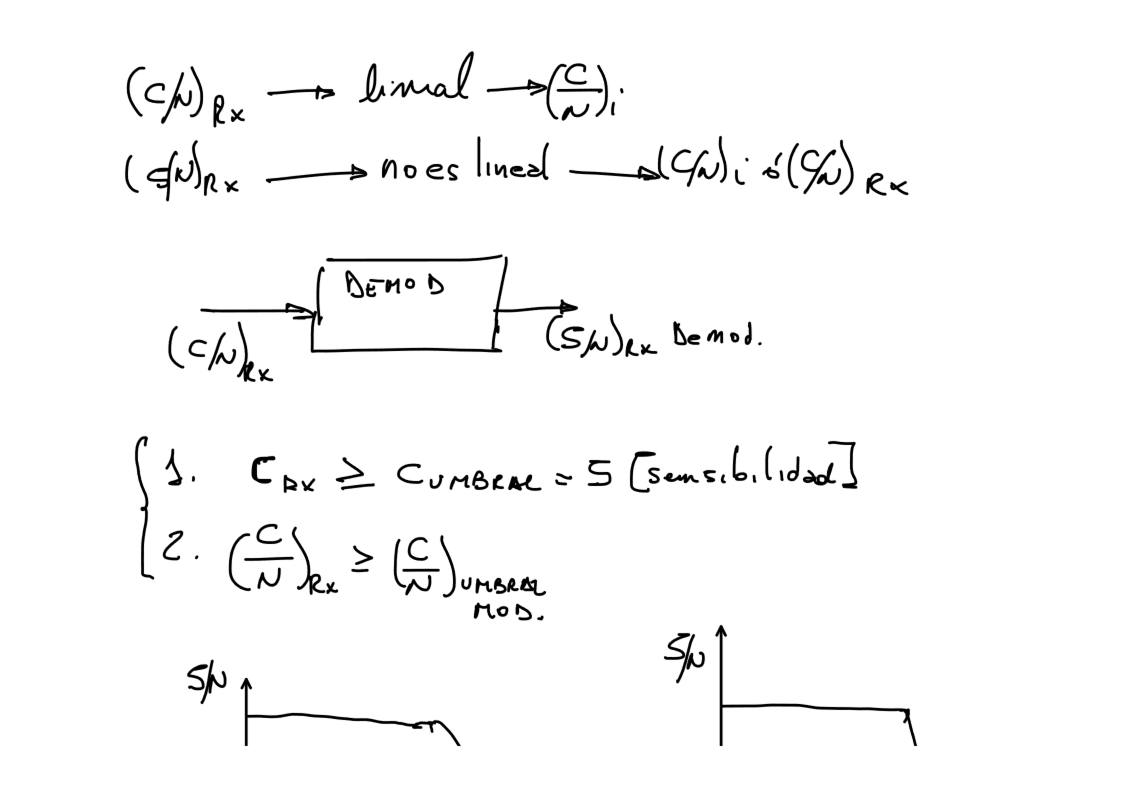 (C/N)Rx → lineal → (C/N)i
(C/N)Rx → no es lineal → (C/N)i ó (C/N)Rx
DEMOD
(C/N)Rx
(S/N)Rx Demod.
1. CRX ≥ CUMBRAL = S [sensibilidad]
2. (C/N)Rx ≥ (C/N)UMBRAL
MOD.
S/N
S/N